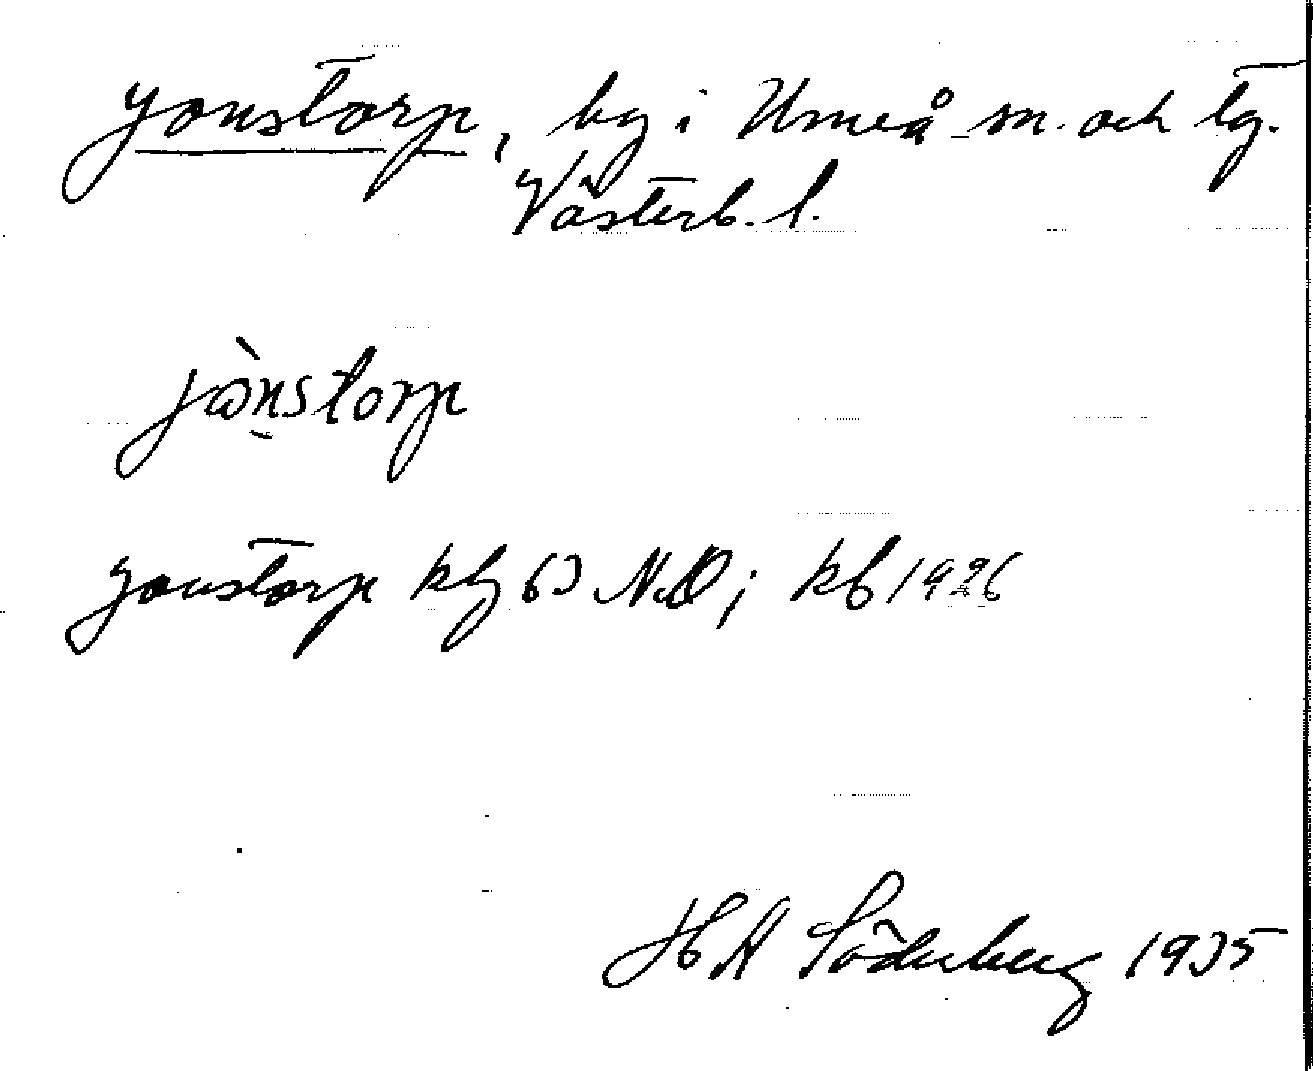 Jonstorp, by i Umeå sn. och tg.
Västerb. l.
jὼn̠storp
Jonstorp kbl 63 NO; kb 1926
H A Söderberg 1935